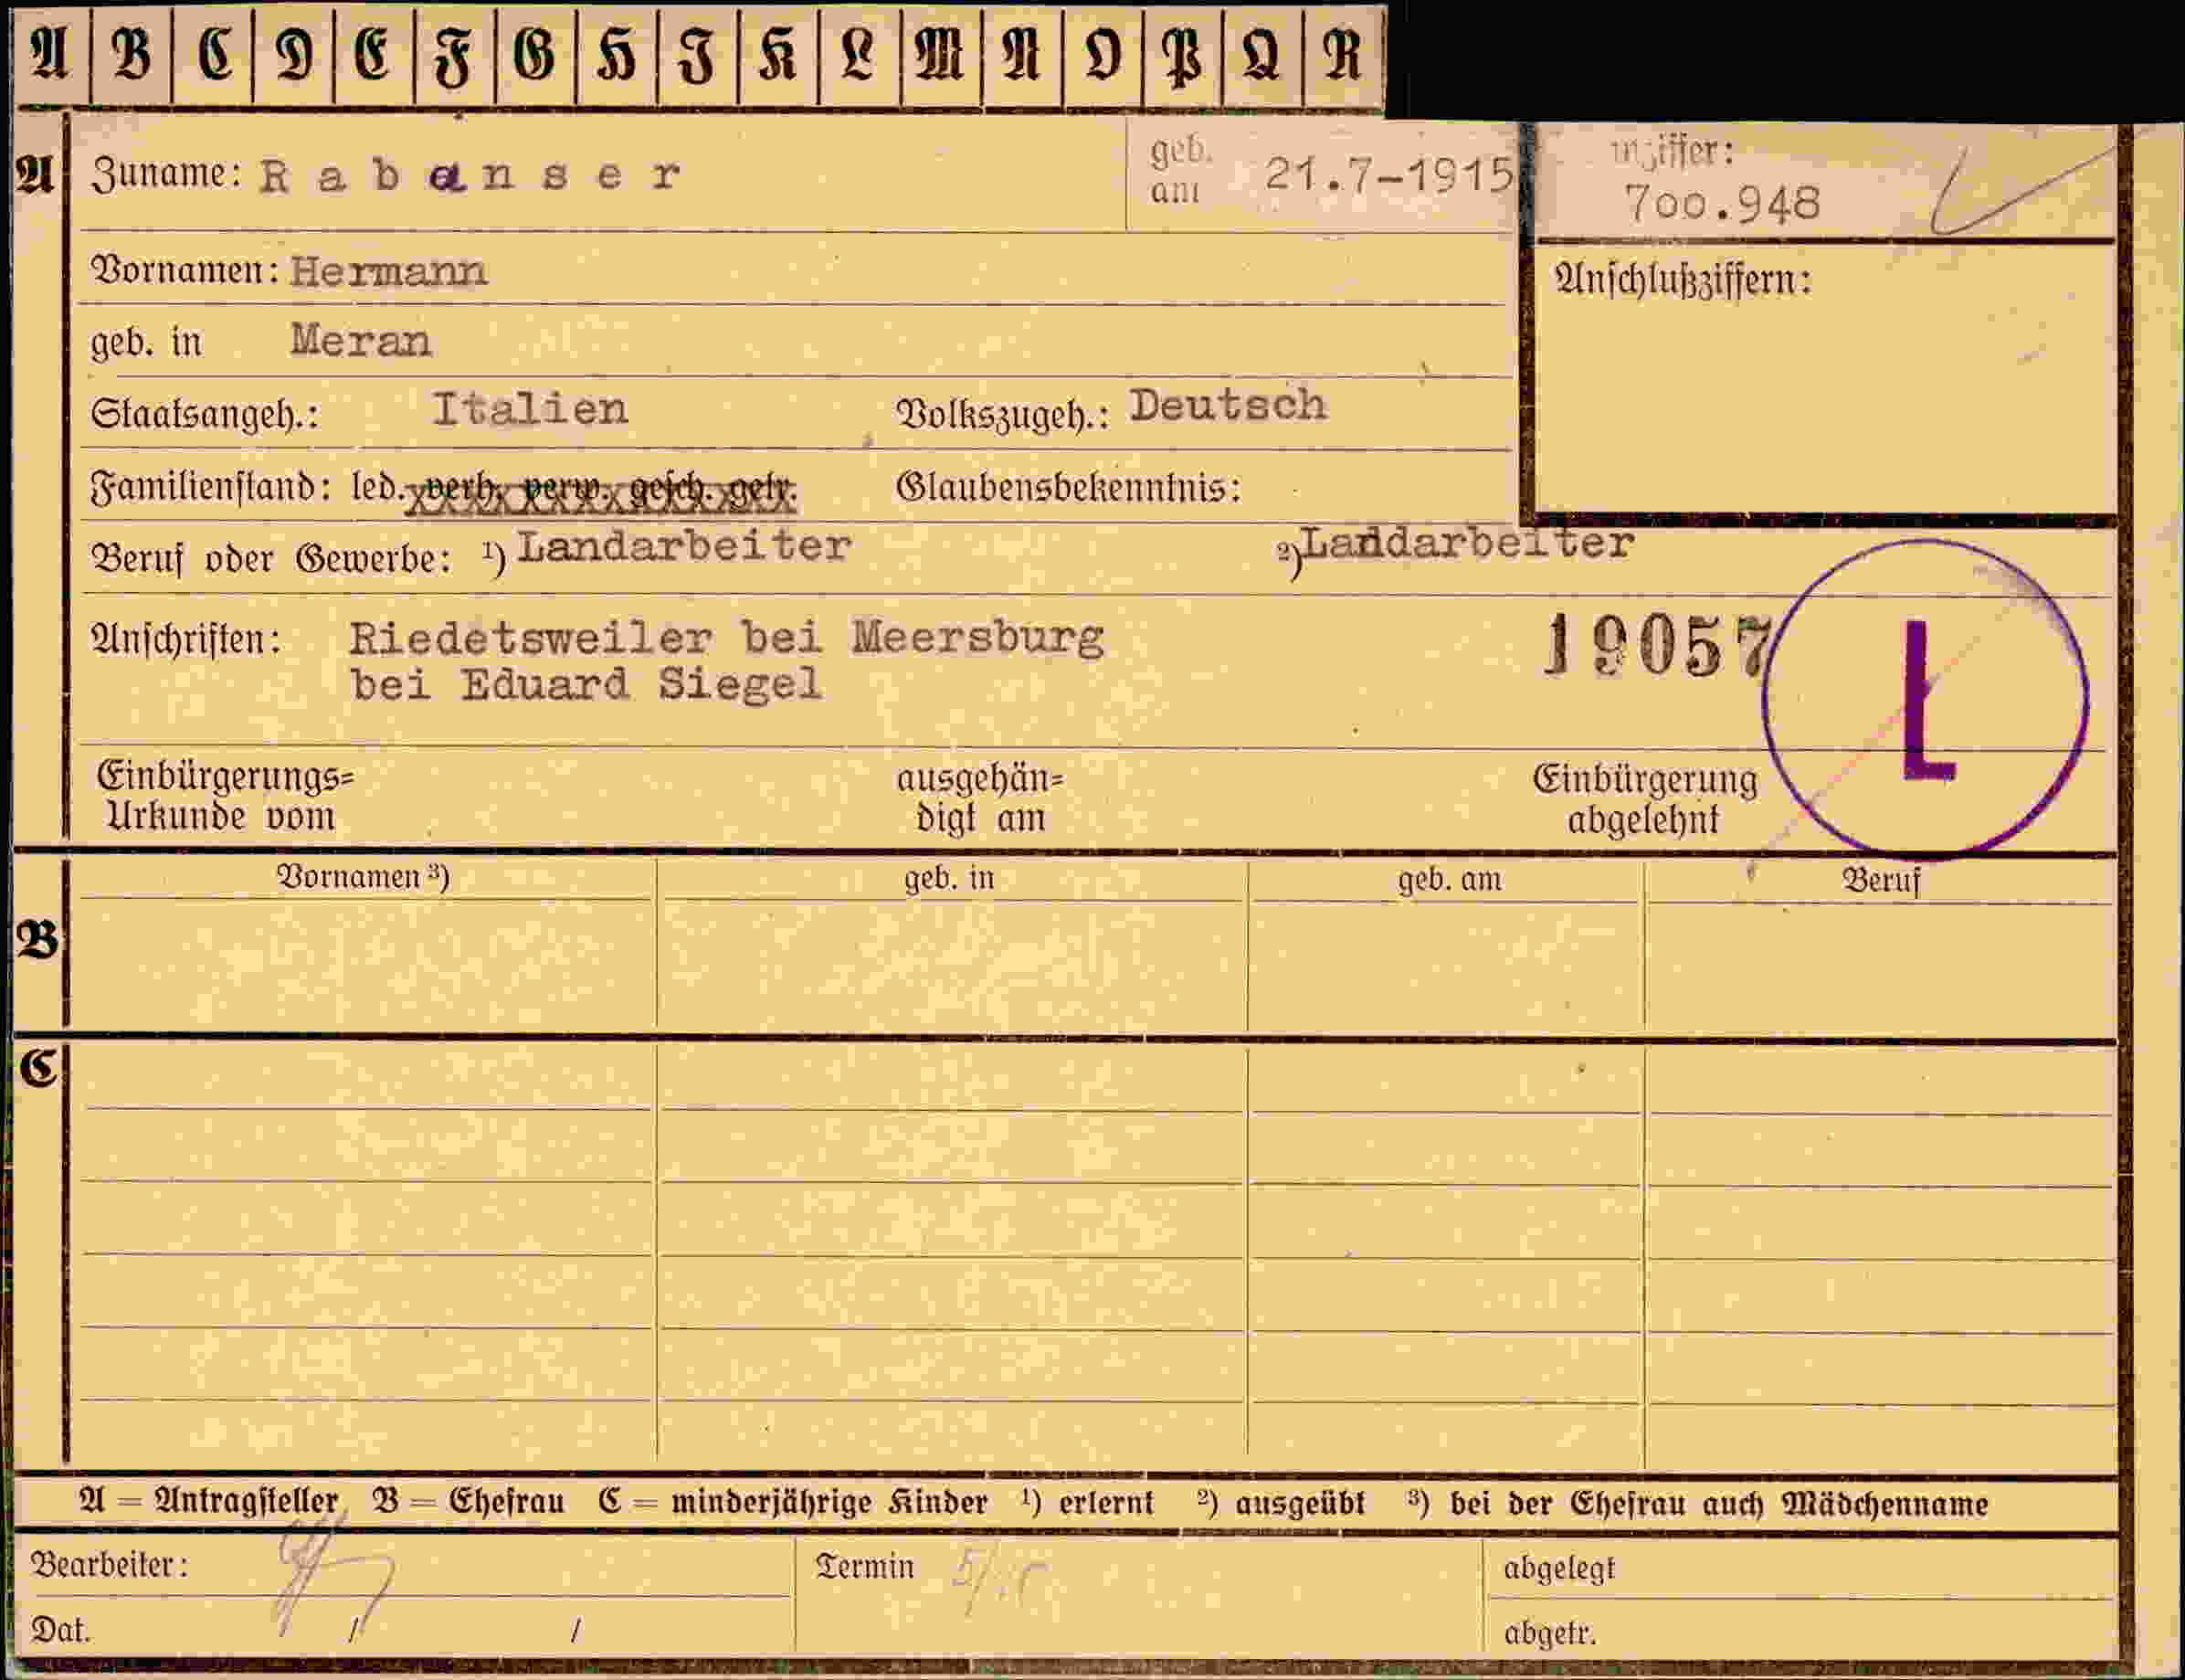 A B C D E F G H I K L M N O P Q R
A Zuname: Rabanser geb. am 21.7-1915
700.948
Vornamen: Hermann
Anschlußziffern:
geb. in Meran
Staatsangeh.: Italien Volkszugeh.: Deutsch
Familienstand: led. verh. verw. gesch. getr. Glaubensbekenntnis:
Beruf oder Gewerbe: ¹) Landarbeiter ²) Landarbeiter
Anschriften: Riedetsweiler bei Meersburg 19057
bei Eduard Siegel
L
Einbürgerungs= ausgehän= Einbürgerung
Urkunde vom digt am abgelehnt
Vornamen ³) geb. in geb. am Beruf
B
C
A = Antragsteller B = Ehefrau C = minderjährige Kinder ¹) erlernt ²) ausgeübt ³) bei der Ehefrau auch Mädchenname
Bearbeiter: Termin abgelegt
Dat. / / abgetr.